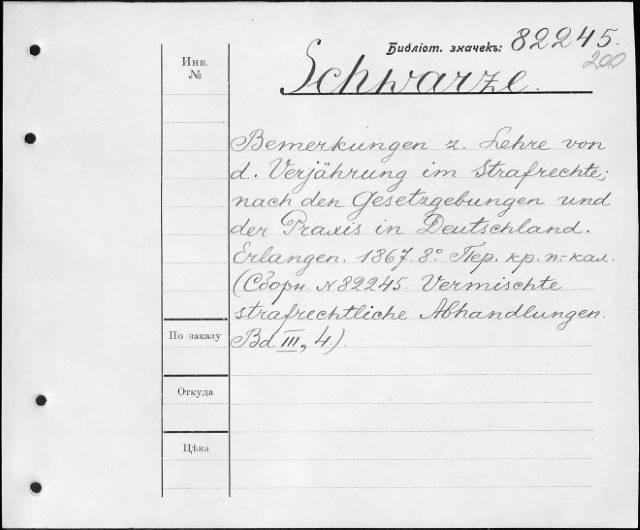 Библіот. значекъ: 82245.
200
Инв.
№
Schwarze.
Bemerkungen z. Lehre von
d. Verjährung im Strafrechte,
nach den Gesetzgebungen und
der Praxis in Deutschland.
Erlangen. 1867. 8º. Пер. кр. п.-кал.
(Сборн. №82245. Vermischte
strafrechtliche Abhandlungen.
По заказу
Bd III, 4).
Откуда
Цѣна